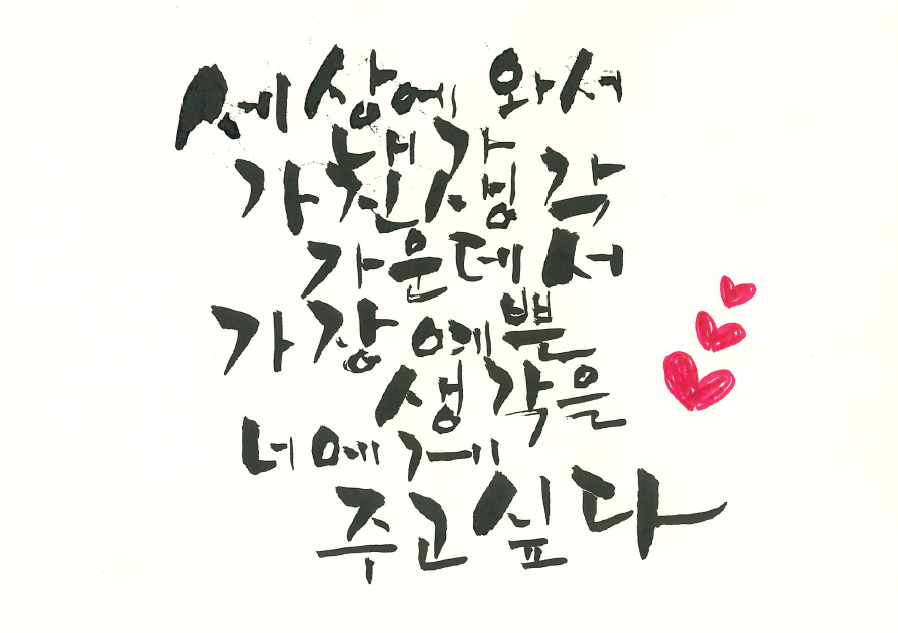 세상에 와서
생각
가운데서
가장 예쁜
생각을
너에게
주고 싶다